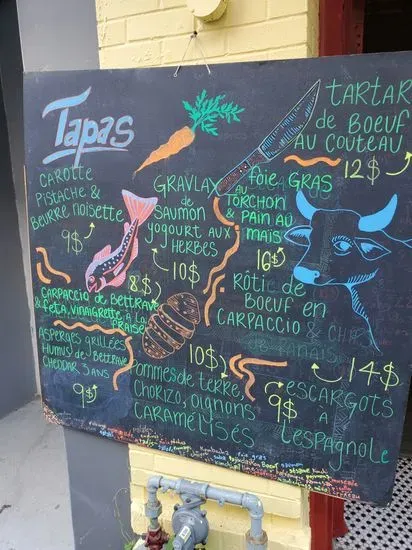 Tapas
CAROTTE
PISTACHE &
BEURRE NOISETTE
9$
GRAVLAX
de
SAUMON
yogourt aux
HERBES
10$
foie GRAS
AU
TORCHON
& PAIN AU
maïs
16$
TARTAR
de BOEUF
AU COUTEAU
12$
CARPACCIO de BETTRAVE
& feta, vinaigrette à LA
fraise
8$
RÔTIE de
BOEUF en
CARPACCIO &
14$
ASPERGES grillées
HUMUS de BETTRAVE
CHEDDAR 3 ANS
9$
Pommes de terre,
CHORIZO, oignons
CARAMÉLISÉS
10$
ESCARGOTS
à
L'ESPAGNOLE
9$